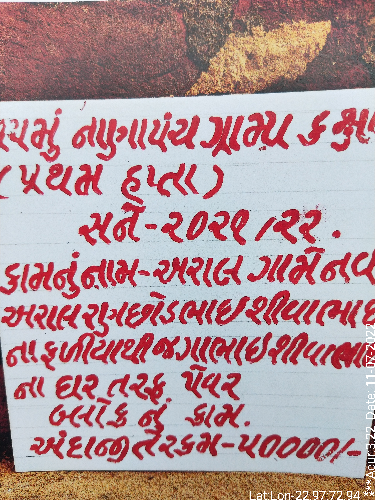 નાણાપંચ ગ્રામ્ય કક્ષા
(પ્રથમ હપ્તા)
સને-૨૦૨૧/૨૨.
કામનું નામ-અરાલ ગામે નવ
અરાલ રણછોડભાઇ શીવાભાઇ
ના ફળીયાથી જગાભાઇ શીવાભા
ના ઘર તરફ પેવર
બ્લોક નું કામ.
અંદાજીત રકમ-૫૦૦૦૦/-
Lat Lon-22.97:72.94***Acur:3.22, Date: 11-07-2022***